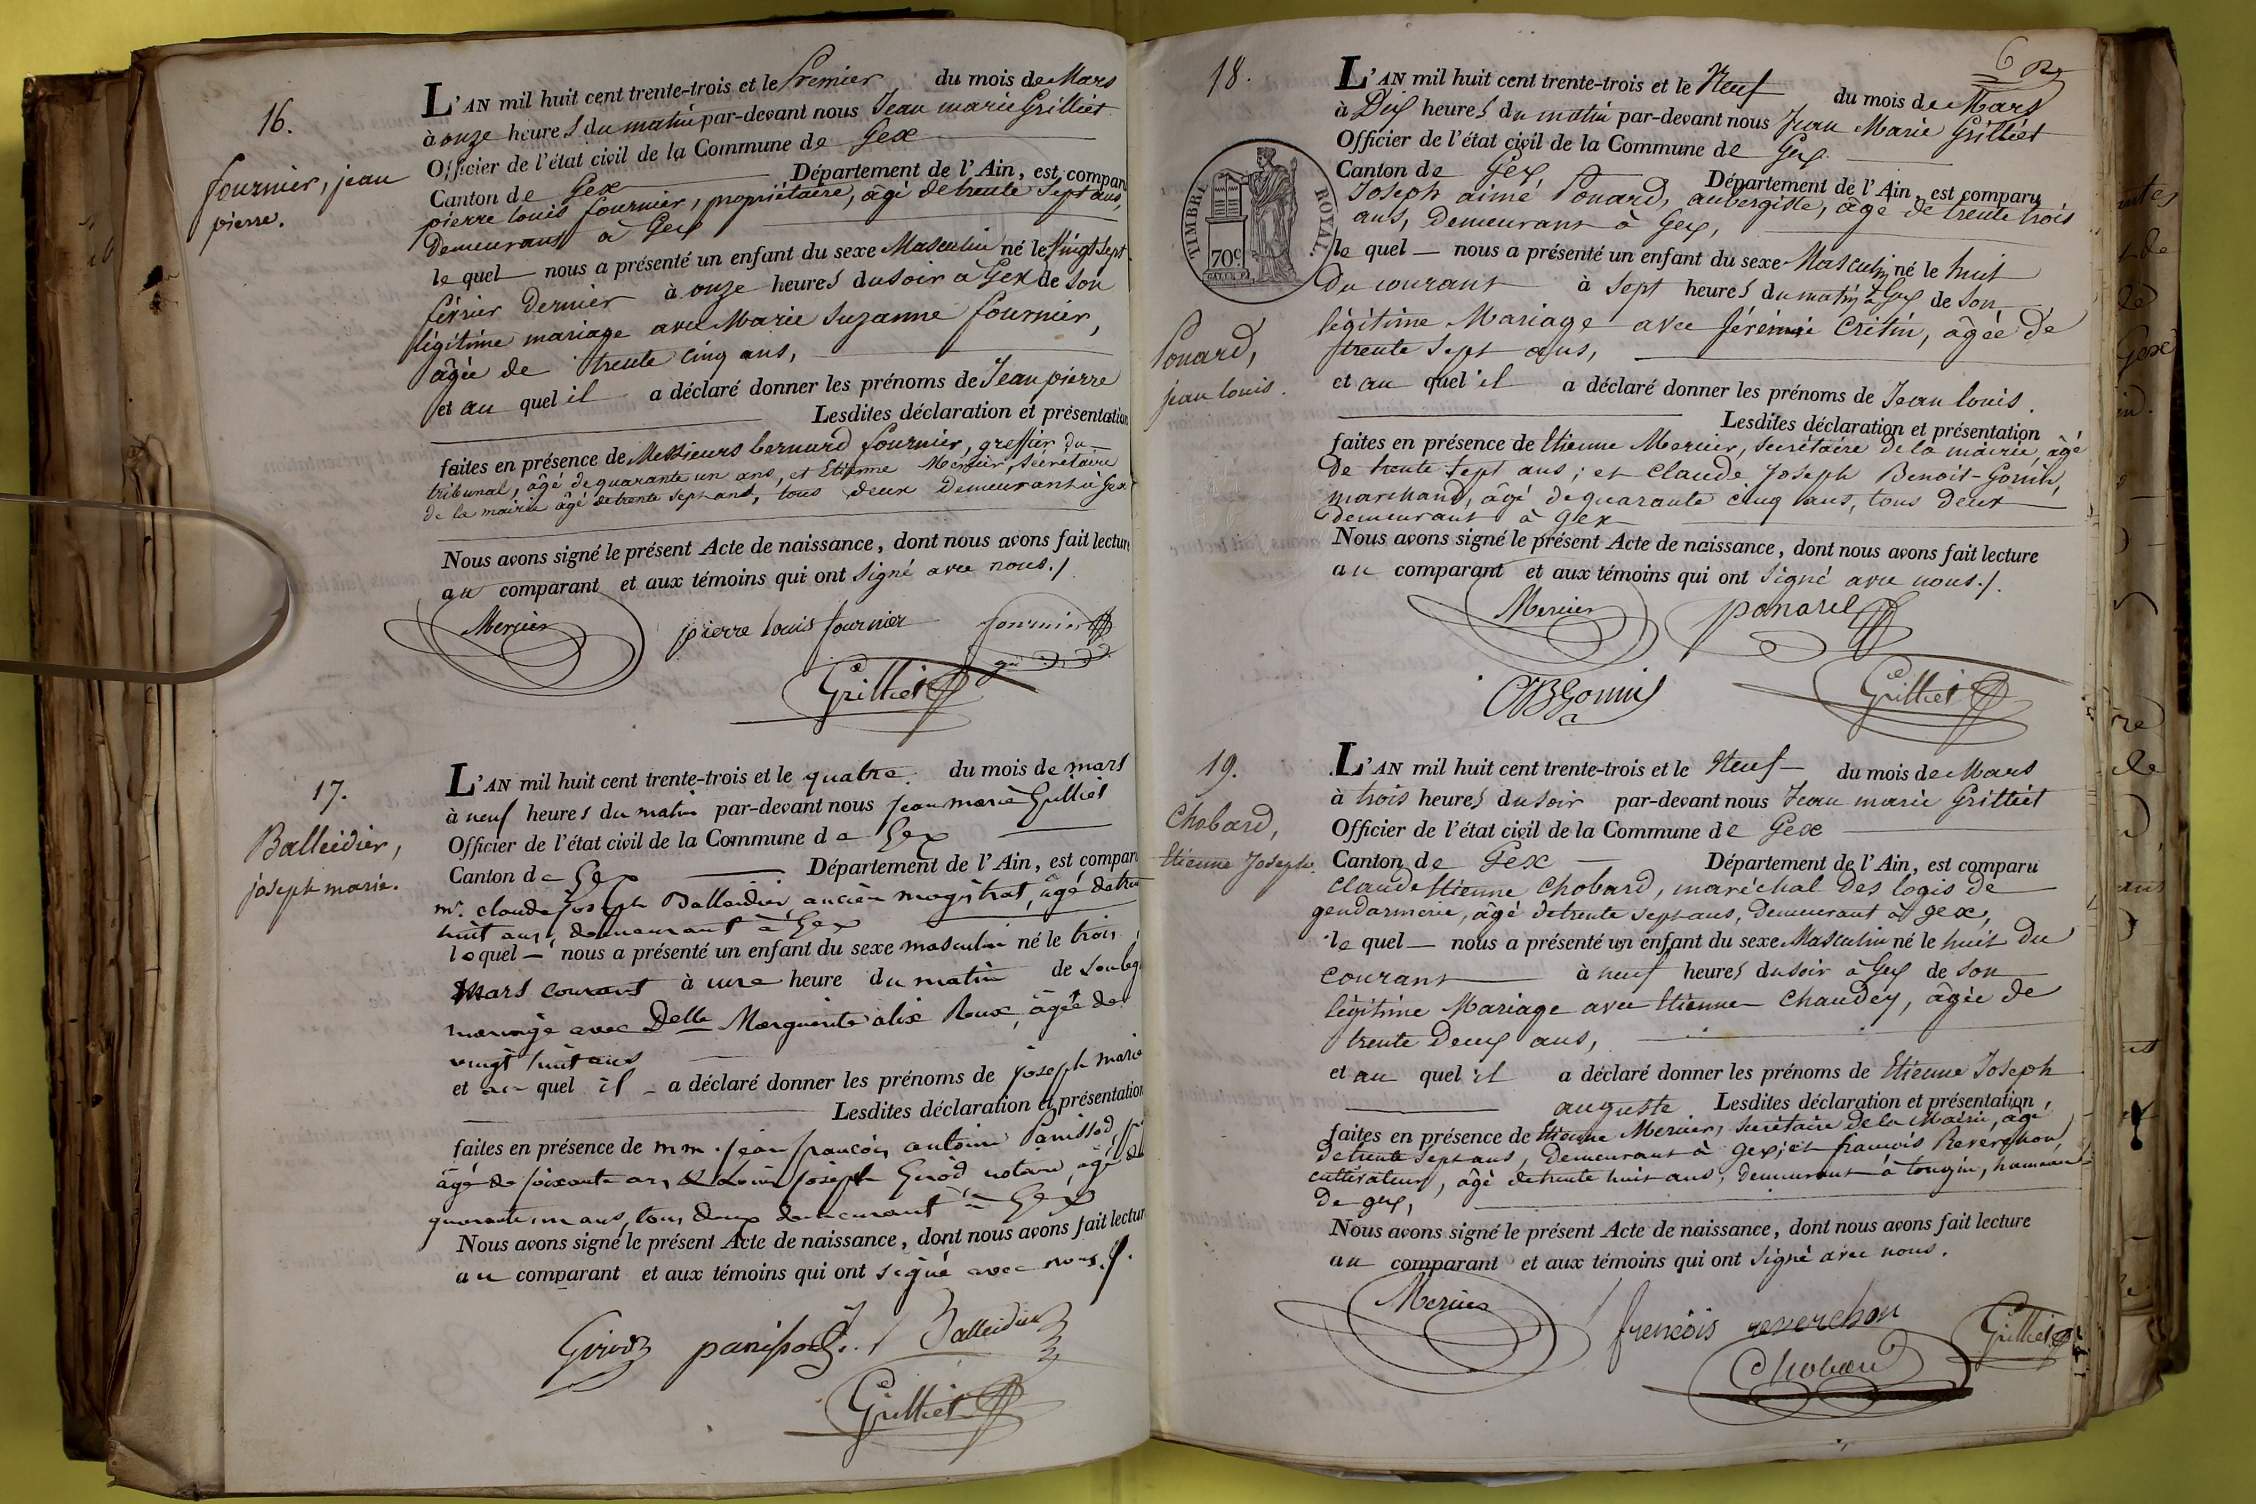 16.
fournier, jean
pierre.
L'AN mil huit cent trente-trois et le Premier du mois de Mars
à onze heures du matin par-devant nous Jean marie Grilliet
Officier de l'état civil de la Commune de Gex
Canton de Gex Département de l'Ain, est compar
pierre louis fournier, propriétaire, âgé de trente Sept ans,
Demeurant à Gex
le quel nous a présenté un enfant du sexe Masculin né le Vingt Sept
février dernier à onze heures du soir à Gex de son
légitime mariage avec Marie Suzanne fournier,
âgée de trente cinq ans,
et au quel il a déclaré donner les prénoms de Jean pierre
Lesdites déclaration et présentation
faites en présence de Messieurs bernard fournier, greffier du
tribunal, âgé de quarante un ans, et Etienne Mercier, Sécrétaire
de la mairie âgé de trente sept ans, tous deux Demeurant à Gex
Nous avons signé le présent Acte de naissance, dont nous avons fait lecture
au comparant et aux témoins qui ont signé avec nous./
Mercier pierre louis fournier fournier
Grilliet
17.
Balleidier,
joseph marie.
L'AN mil huit cent trente-trois et le quatre. du mois de mars
à neuf heures du matin par-devant nous Jean marie Grilliet
Officier de l'état civil de la Commune de Gex
Canton de Gex Département de l'Ain, est compar
mr. claude joseph Balleidier, ancien magistrat, âgé de tren
huit ans, demeurant à Gex
le quel nous a présenté un enfant du sexe masculin né le trois
mars courant à une heure du matin de son leg
mariage avec Delle Marguerite alix Roux, âgée de
vingt huit ans
et au quel il a déclaré donner les prénoms de joseph marie
Lesdites déclaration et présentation
faites en présence de mm. jean françois antoine Panissod
âgé de soixante ans & Louis joseph Girod, notaire, âgé de
quarante un ans, tous deux demeurant à Gex
Nous avons signé le présent Acte de naissance, dont nous avons fait lectur
au comparant et aux témoins qui ont signé avec nous./.
Girod panissod Balleidier
Grilliet
6
18.
TIMBRE ROYAL
70c.
Ponard,
jean louis.
L'AN mil huit cent trente-trois et le Neuf du mois de Mars
à Dix heures du matin par-devant nous Jean Marie Grilliet
Officier de l'état civil de la Commune de Gex
Canton de Gex Département de l'Ain, est comparu
Joseph aimé Ponard, aubergiste, âgé de trente trois
ans, Demeurant à Gex,
le quel nous a présenté un enfant du sexe Masculin né le huit
Du courant à sept heures du matin à Gex de son
légitime Mariage avec Jérémie Crétin, âgée de
trente Sept ans,
et au quel il a déclaré donner les prénoms de Jean louis.
Lesdites déclaration et présentation
faites en présence de Etienne Mercier, secrétaire de la mairie, âgé
de trente Sept ans; et Claude Joseph Benoit-Gonin,
marchand, âgé de quarante cinq ans, tous deux
demeurant à Gex
Nous avons signé le présent Acte de naissance, dont nous avons fait lecture
au comparant et aux témoins qui ont signé avec nous./.
Mercier ponard
CJBGonin Grilliet
19.
Chobard,
Etienne Joseph.
L'AN mil huit cent trente-trois et le Neuf du mois de Mars
à trois heures du soir par-devant nous Jean marie Grilliet
Officier de l'état civil de la Commune de Gex
Canton de Gex Département de l'Ain, est comparu
Claude Etienne Chobard, maréchal des logis de
gendarmerie, âgé de trente sept ans, demeurant à gex,
le quel nous a présenté un enfant du sexe Masculin né le huit Du
courant à neuf heures du soir à Gex de son
légitime Mariage avec Etienne Chaudey, âgée de
trente Deux ans,
et au quel il a déclaré donner les prénoms de Etienne Joseph
auguste Lesdites déclaration et présentation,
faites en présence de Etienne Mercier, secrétaire de la Mairie, âgé
de trente sept ans, Demeurant à gex; et françois Reverchon,
cultivateur, âgé de trente huit ans, demeurant à tougin, hameau
De gex,
Nous avons signé le présent Acte de naissance, dont nous avons fait lecture
au comparant et aux témoins qui ont signé avec nous.
Mercier frencois reverchon Grilliet
Chobard